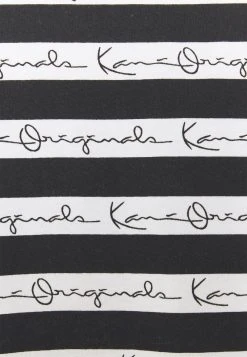 Originals Kani Origi
Originals Kani
Originals Kani Ori
Kani Originals Kani
Originals Kani